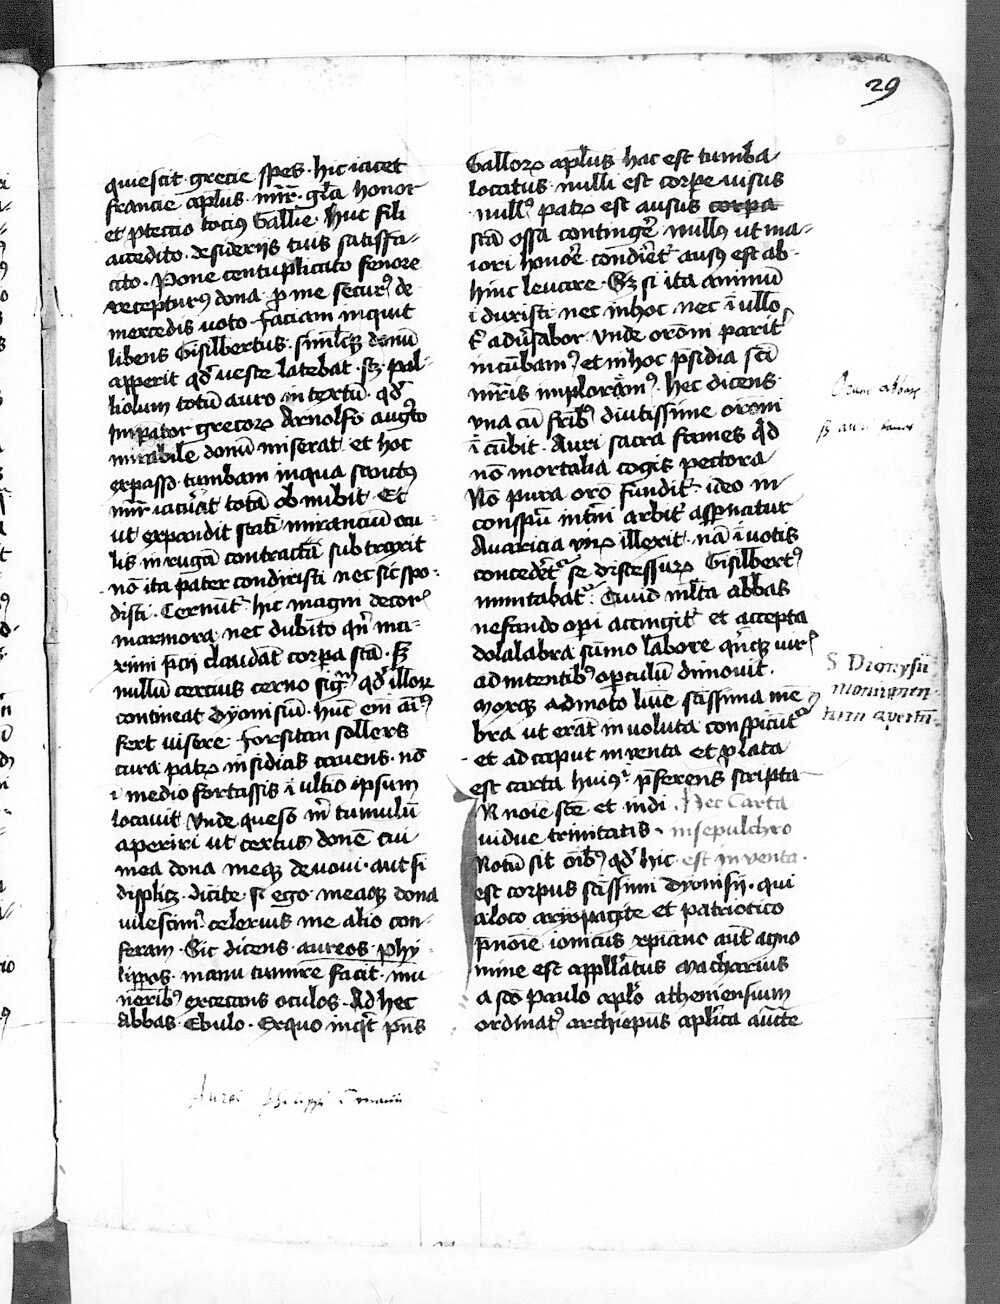 29
quiescit grecie spes. hic iacet
francie apl̄us. mr̄r. gl̄a honor
et ꝓtectio tociꝰ Gallie. huc fili
accedito. desiderijs tuis satisfa-
cito. Pone centuplicato fenore
recepturꝰ dona. ꝑ me securꝰ de
mercedis uoto. faciam inquit
libens Gisilbertus. simulqꝫ donū
apperit qd̄ ueste latebat. sꝫ pal-
liolum totū auro intextū. qd̄
Imꝑator grecoꝝ Arnolfo augt̄o
mirabile donū miserat et hoc
expasso tumbam in qua sanctus
mr̄r iacuat totā obnubit. Et
ut expandit statī mirancium ocu-
lis in rugā contractā subtraxit
nō ita pater condixisti nec sic spo-
disti. Cernūtr hic magni decorꝰ
marmora. nec dubito qn̄ ma-
ximi pc̄ij claudāt corpa scā. sꝫ
nullū cercius cerno sigm̄ qd̄ illoꝝ
contineat dyonisiū. hūc em̄ aīꝰ
fert visere. forsitan sollers
cura patꝝ insidias cauens. nō
ī medio fortassis ī ultīo ipsum
locauit. Vnde queso mī tumulū
aperiri ut certus donē cui
mea dona meqꝫ deuoui. aut si
displicꝫ. dicite. si ego meaqꝫ dona
uilescimꝰ. celerius me alio con-
feram. Sic dicens aureos phy-
lippos. manu tinnire facit. mu
neribꝰ excecans oculos. Ad hec
Abbas Ebulo. Ex quo inqt̄ pn̄s
Aurei philippi ī manu
Galloꝝ apl̄us hac est tumba
locatus. nulli est corpe uisus
nullꝰ patꝝ est ausus corpa
scā ossa contingeꝛ̄. nullꝰ ut ma-
iori honoꝛ̄e condiēt ausꝰ est ab-
hinc leuare. Sꝫ si ita animū
īduxisti nec in hoc nec ī ullo
t̄ aduersabor. Vnde orōni parit̄
incūbamꝰ. et in hoc psidia scī
mr̄ris implorāmꝰ. hec dicens
vna cū fribꝰ diutissime orōni
īcūbit. Auri sacra fames qd̄
nō mortalia cogis pectora
Nō pura orō fundit̄. ideo in
conspū int̄ni arbit̄ aspnatur
Auaricia viꝝ illexit. nā ī uotis
concedet̄ se discessuꝝ Gisilbertꝰ
minitabat̄. Quid ml̄ta abbas
nefando opi accingit̄ et accepta
dolalabra sūmo labore qn̄qꝫ uirꝰ
adnitentibꝰ opculū dimouit.
moxqꝫ admoto liūe scīssima mē
bra ut erāt inuoluta conspiciūtr
et ad caput inuenta et ꝓlata
est carta huiꝰ p̄ferens scripta
IN noīe scē et indi Hec Carta
uidue trinitatis. in sepulchro
Notū sit oībꝰ qd̄ hic est inuenta.
est corpus scīssimi dyonisij. qui
a loco ariopagite et patriotico
p̄noīe ionicus xpiano aut̄ agno
mine est appll̄atus Macharius
a sc̄o paulo aplo atheniensium
ordinatꝰ archiep̄us apl̄ica auct̄e
S Dionysii
monumen-
tum apertū.